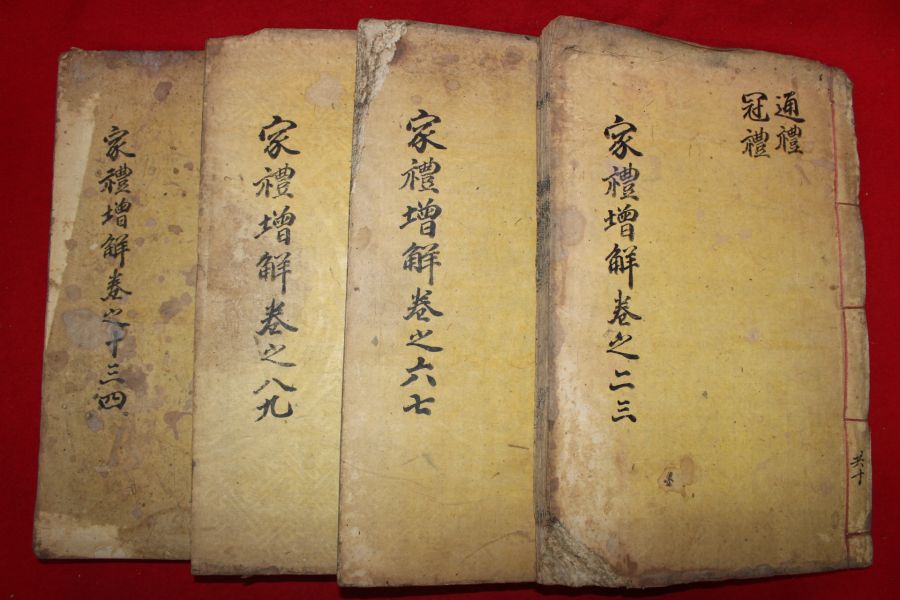 通禮
冠禮
家禮增解卷之二三
共十
家禮增解卷之六七
家禮增解卷之八九
家禮增解卷之十三四